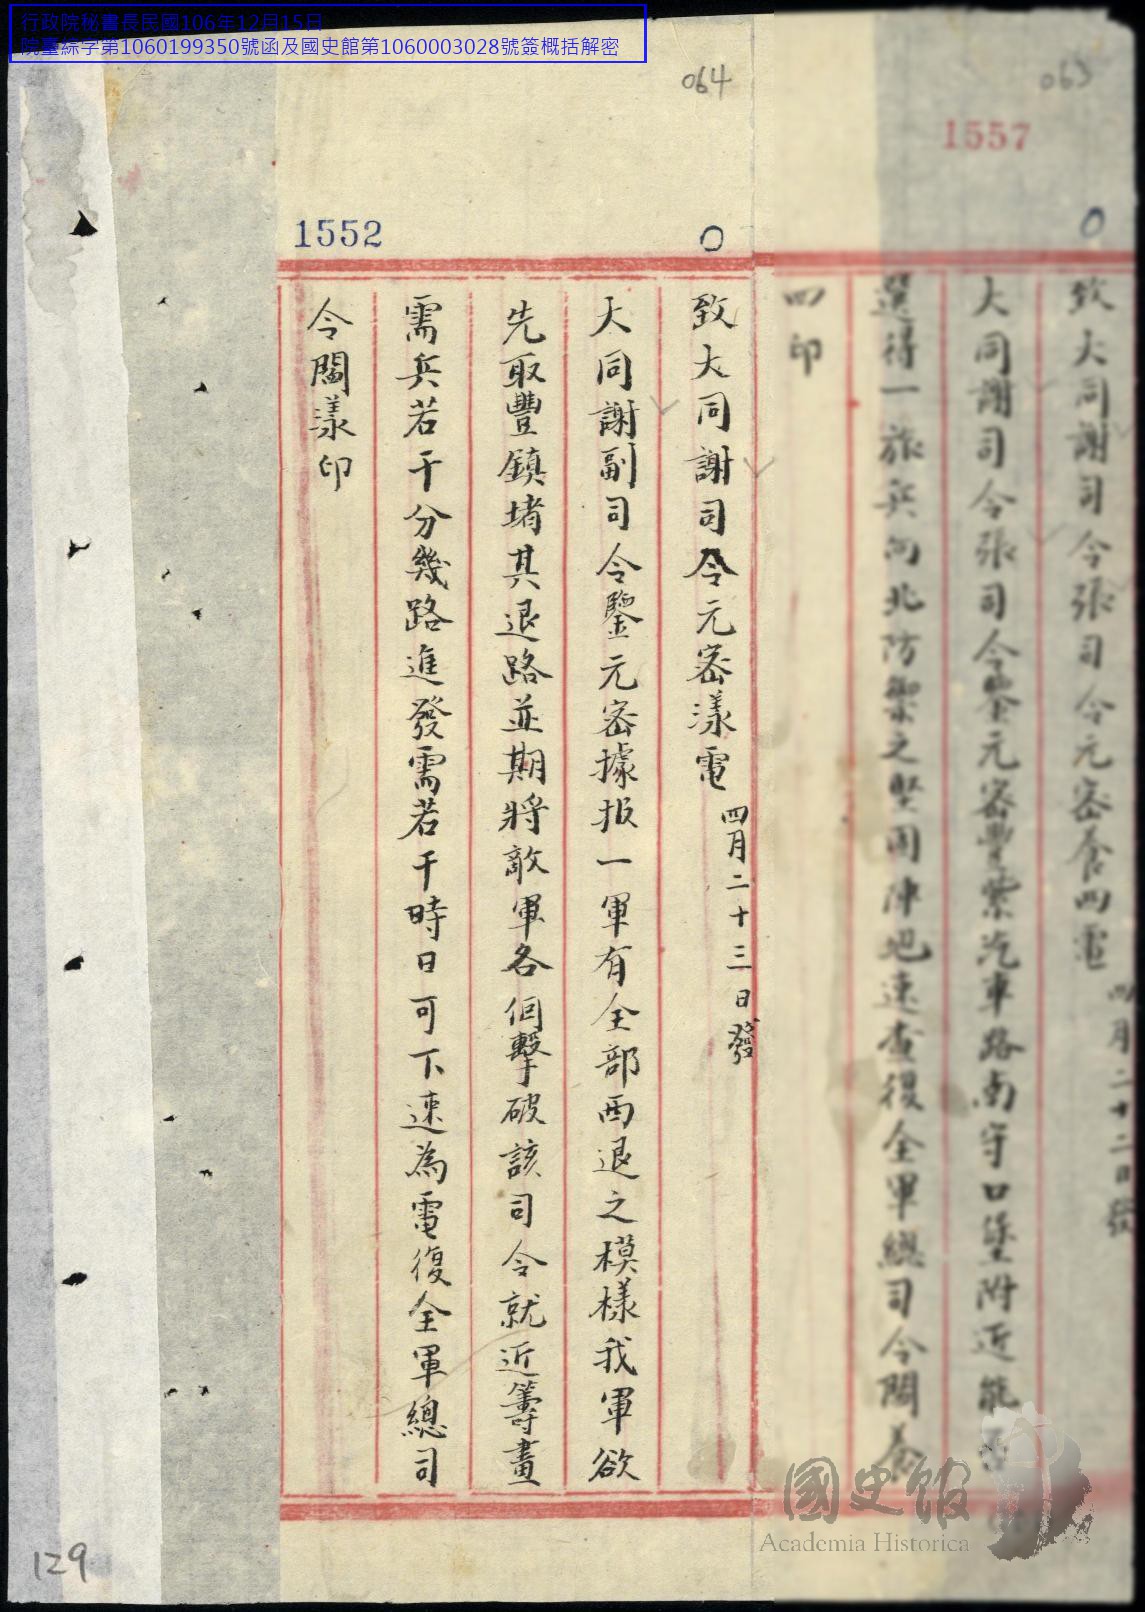 行政院秘書長民國106年12月15日
院臺綜字第1060199350號函及國史館第1060003028號簽概括解密
063
1557
0
致大同謝司令張司令元密養四電 四月二十二日發
大同謝司令張司令鑒元密豐紫汽車路南守口堡附近能否
選得一旅兵向北防禦之堅固陣地速查復全軍總司令閻養
四印
064
1552
0
致大同謝司令元密漾電 四月二十三日發
大同謝副司令鑒元密據报一軍有全部西退之模樣我軍欲
先取豐鎮堵其退路並期將敵軍各個擊破該司令就近籌畫
需兵若干分幾路進發需若干時日可下速為電復全軍總司
令閻漾印
129
國史館
Academia Historica